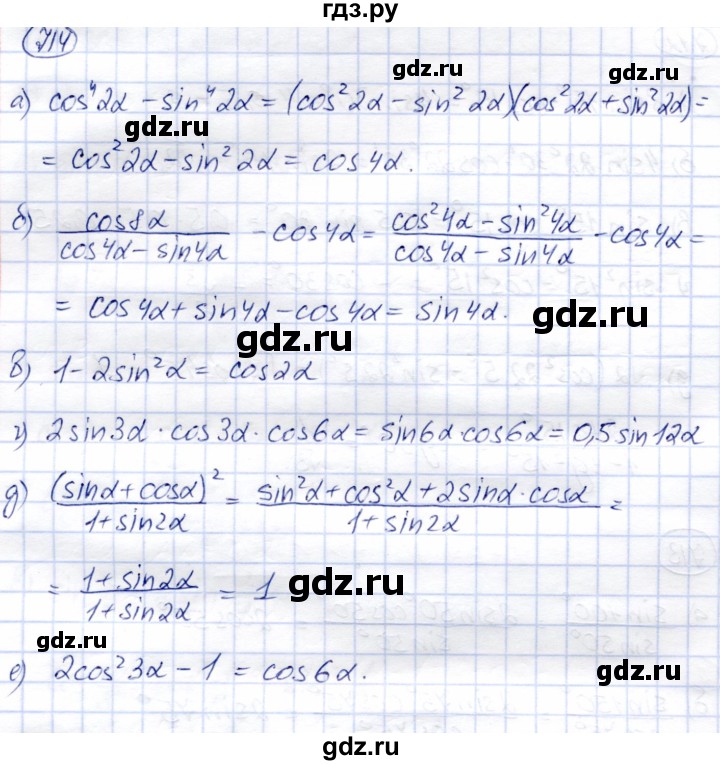 гдз.ру
714
а) cos⁴2α - sin⁴2α = (cos²2α - sin²2α)(cos²2α + sin²2α) =
gdz.ru gdz.ru
gdz.ru
= cos²2α - sin²2α = cos4α.
б) cos8α / (cos4α - sin4α) - cos4α = (cos²4α - sin²4α) / (cos4α - sin4α) - cos4α =
= cos4α + sin4α - cos4α = sin4α.
gdz.ru
gdz.ru
в) 1 - 2sin²α = cos2α
г) 2sin3α · cos3α · cos6α = sin6α cos6α = 0,5sin12α
д) (sinα + cosα)² / (1 + sin2α) = (sin²α + cos²α + 2sinα · cosα) / (1 + sin2α) =
= (1 + sin2α) / (1 + sin2α) = 1
gdz.ru
gdz.ru
е) 2cos²3α - 1 = cos6α.
gdz.ru
gdz.ru
gdz.ru